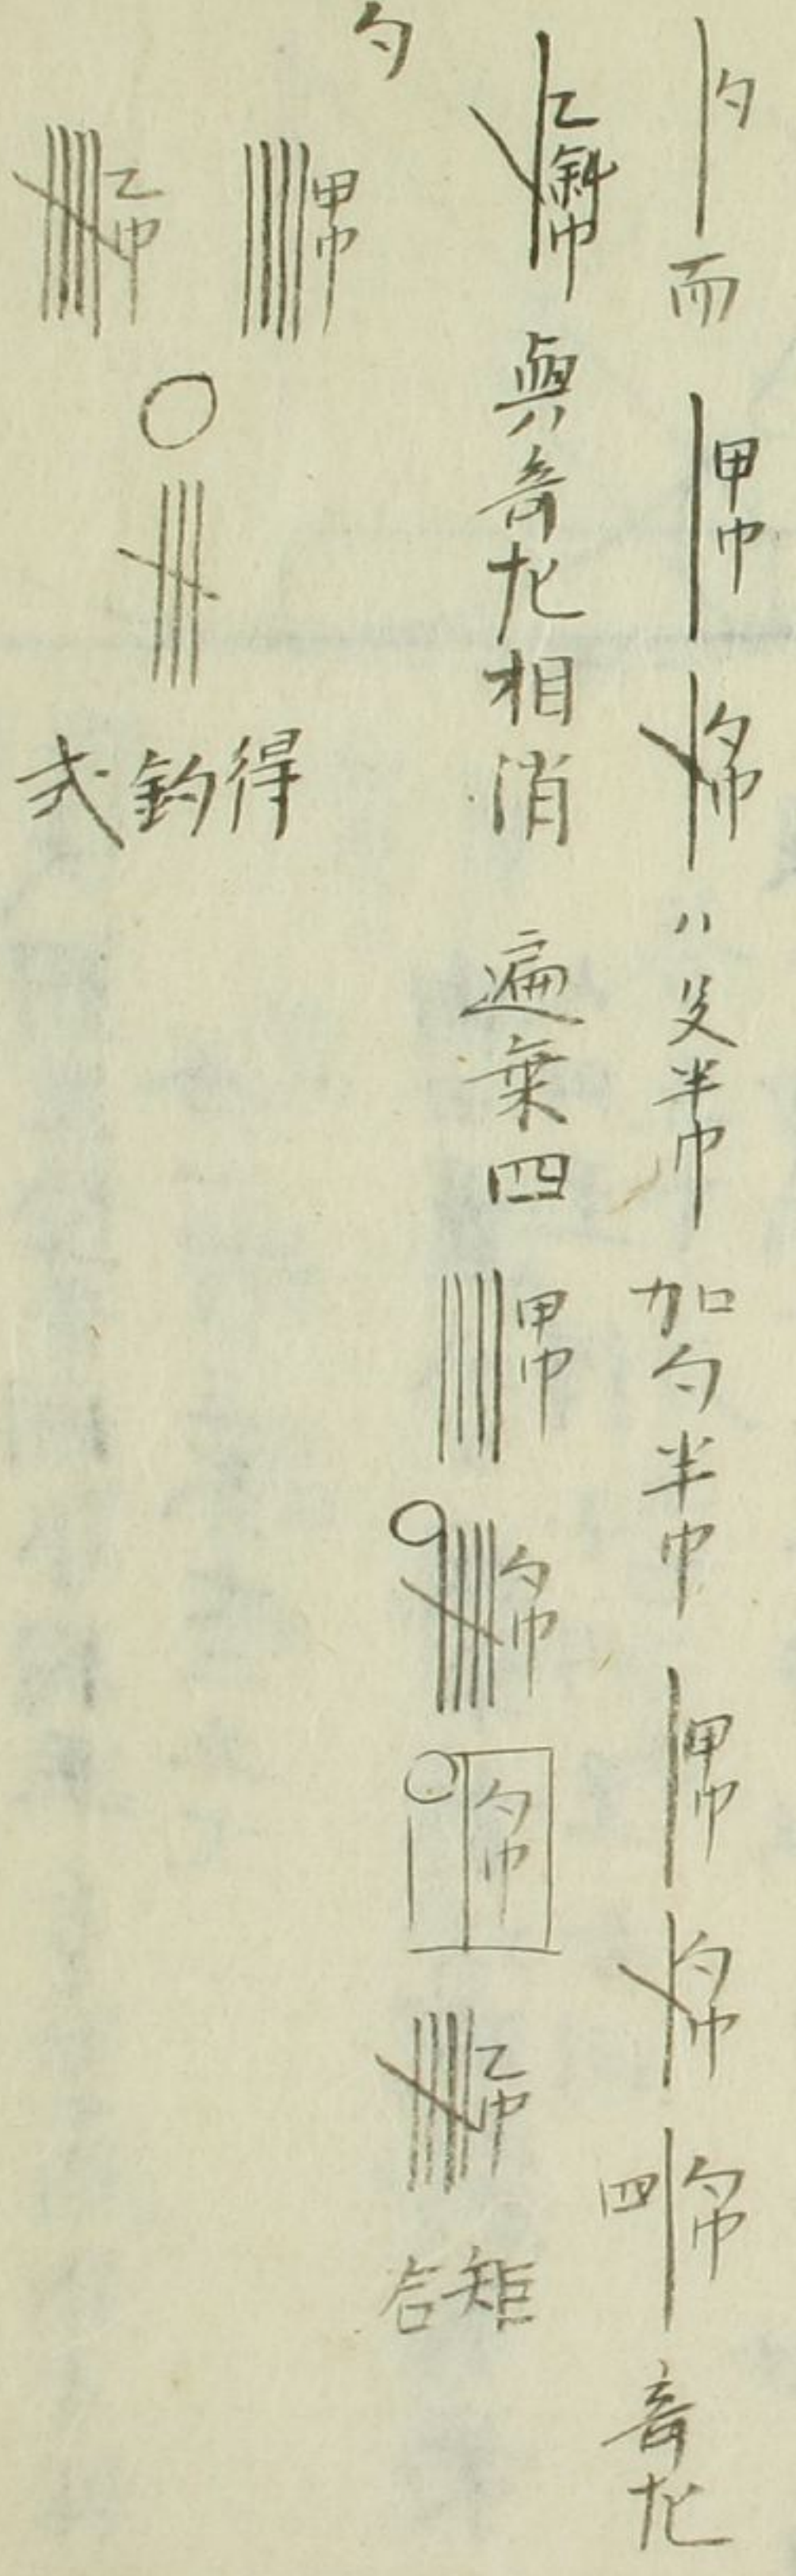 |勺 而 |甲巾 |勺巾 〃 半巾 加勺半巾 |甲巾 |勺巾 四|勺巾 寄左
|乙斜巾 與寄左相消 遍乗四 ||||甲巾 ○||||勺巾 ○|勺巾 ||||乙巾 矩合
勺
||||甲巾 ||||乙巾 ○ ||| 得鈎式